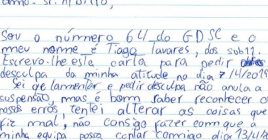 Sou o número 64 do GDSC e o
meu nome é Tiago Tavares, dos sub11.
Escrevo-lhe esta carta para pedir
desculpa da minha atitude no dia 7/4/2019
Sei que lamentar e pedir desculpa não anula a
suspensão, mas é bom saber reconhecer os
nossos erros tentei alterar as coisas que
fiz mal, não consigo fazer com que a
minha equipa possa contar comigo dia 13/4/19